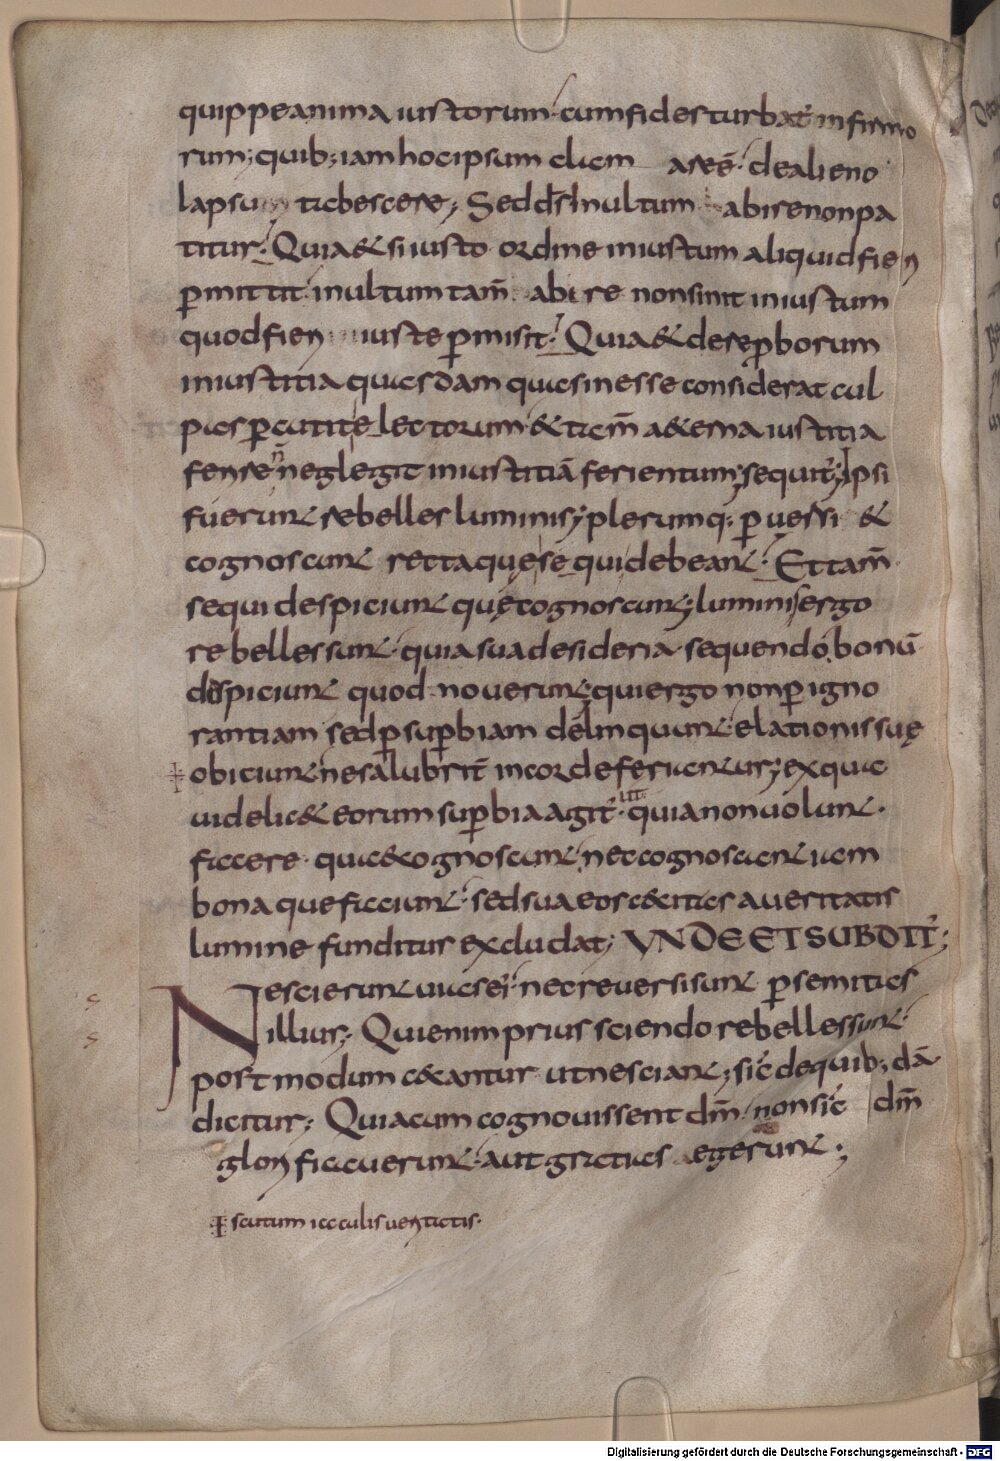 quippe anima iustorum cum fides turbat̄ infirmo
rum; quib; iam hoc ipsum clam ares̄ de alieno
lapsu tabescere; Sed d̄s inultum abire non pa
titur; Quia & si iusto ordine iniustum aliquid fieri
p̄mittit inultum tam̄ abire non sinit iniustum
quod fieri iuste p̄misit; Quia & de rep̄borum
iniustitia quasdam quas inesse considerat cul
pas p̄cutit electorum & tam̄ aeterna iustitia
ferire n̄ neglegit iniustitiā ferientum; sequit̄; Ipsi
fuerunt rebelles luminis; plerumq; puersi &
cognoscunt recta quę sequi debeant; Et tam̄
sequi despiciunt quę cognoscunt; luminis ergo
rebelles sunt quia sua desideria sequendo bonū
despiciunt quod noverunt; qui ergo non p̄ igno
rantiam sed p̄ sup̄biam delinquunt elationis suę
obiciunt ne salubrit̄ in corde feriantur; ex qua
uidelic& eorum sup̄bia agit̄ ut quia non uolunt
facere quae cognoscunt nec cognoscant iam
bona que faciant sed sua eos cecitas a ueritatis
lumine funditus excludat; VNDE ET SUBDIT̄;
Nescierunt uias ei nec reuersi sunt p̄ semitas
illius; Qui enim prius sciendo rebelles sunt
postmodum c&antur ut nesciant; sic̄ de quib; dā
dicitur; Quia cum cognouissent dm̄ non sic̄ dm̄
glorificauerunt aut gratias egerunt;
scutum iaculis ueritatis
Digitalisierung gefördert durch die Deutsche Forschungsgemeinschaft - DFG